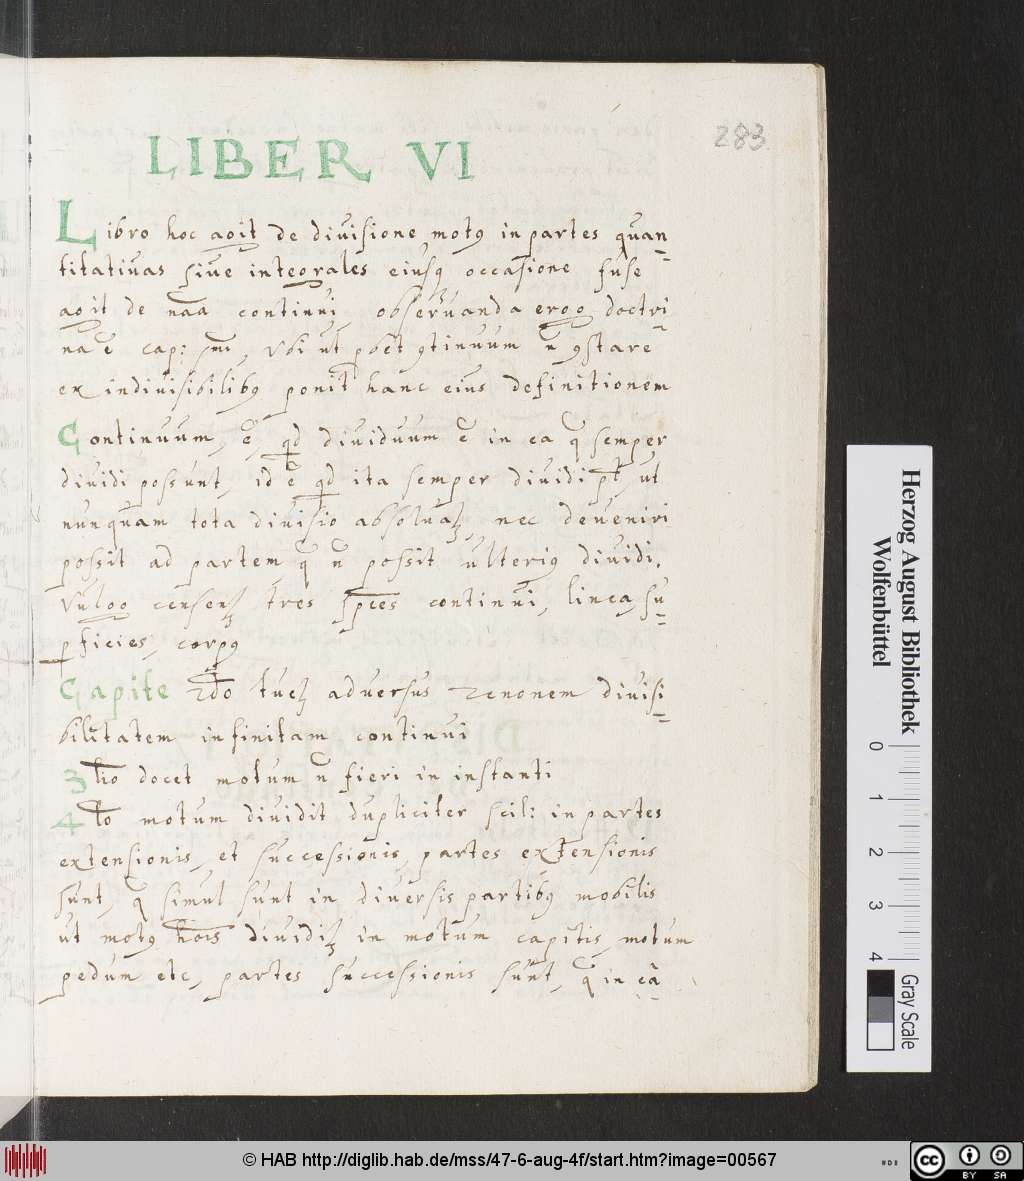 283
LIBER VI
Libro hoc agit de diuisione motꝰ in partes quan=
titatiuas siue integrales eiusq occasione fuse
agit de naa continui, obseruanda ergo doctri=
na ē cap: smi, vbi ut ꝓbet ꝯtinuum n̄ ꝯstare
ex indiuisibilibꝰ ponit hanc eius definitionem
Continuum, ē, qd diuiduum ē in ea q̄ semper
diuidi possunt, id ē qd ita semper diuidi pt̄, ut
nunquam tota diuisio absoluaꝶ, nec deveniri
possit ad partem q̄ n̄ possit ulteriꝰ diuidi.
Vulgo censenꝶ tres spēes continui, linea, su=
ꝑficies, corpꝰ
Capite 2do tueꝶ adversus Zenonem diuisi=
bilitatem infinitam continui
3tio docet motum n̄ fieri in instanti
4to motum diuidit dupliciter scil: in partes
extensionis, et successionis, partes extensionis
sunt, q̄ simul sunt in diuersis partibꝰ mobilis
ut motꝰ hōis diuidiꝶ in motum capitis, motum
pedum etc, partes successionis sunt, q̄ in eā=
Herzog August Bibliothek
Wolfenbüttel
0 1 2 3 4
Gray Scale
© HAB http://diglib.hab.de/mss/47-6-aug-4f/start.htm?image=00567
cc BY SA